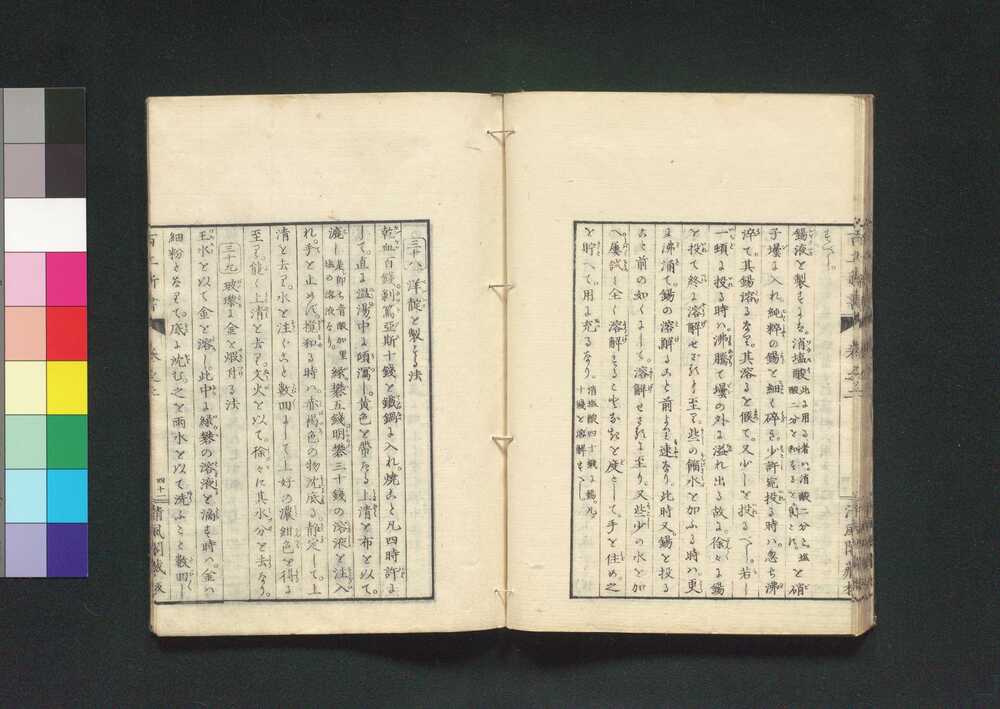 錫液を製するは。消塩酸此に用る者は。消酸二分と塩酸一分とを和するを良とす。を硝
子壜に入れ純粋の錫を細く碎き少許宛投る時ハ。忽ち沸
淬て其錫溶るなり。其溶るを候て。又少しを投るべし。若し
一頓に投る時ハ。沸騰て壜の外に溢れ出る故に徐々に錫
を投て終に溶解せざるに至る。些の餾水を加ふる時ハ。更
に沸涌て錫の溶解ること前よりも速なり。此時又錫を投る
こと前の如くして。溶解せざるに至り。又些少の水を加
へ屡試て全く溶解することなきを度として。手を住め。之
を貯へて。用に充るなり。消塩酸四十錢に錫。凡十錢を溶解す。
三十八 洋靛を製する法
乾血百錢剥篤亜斯十錢を鐵鍋に入れ。焼こと凡四時許に
して。直に温湯中に傾瀉し。黄色を帯たる上清を布を以て。
漉し是即ち青酸加里塩の溶液なり。緑礬五錢明礬三十錢の溶液を注入
れ。手を止めず。攪和る時ハ。赤褐色の物沈底る静定して上
清を去り。水を注ぐこと数回にして上好の濃紺色を得る
に至る。能く上清を去り。文火を以て。徐々に其水分を去なり。
三十九 玻璃に金を煆付る法
王水を以て金を溶し。此中に緑礬の溶液を滴す時ハ。金ハ
細粉となりて。底に沈む。之を雨水を以て洗ふこと数回し
卷之二
四十二
清風閣蔵